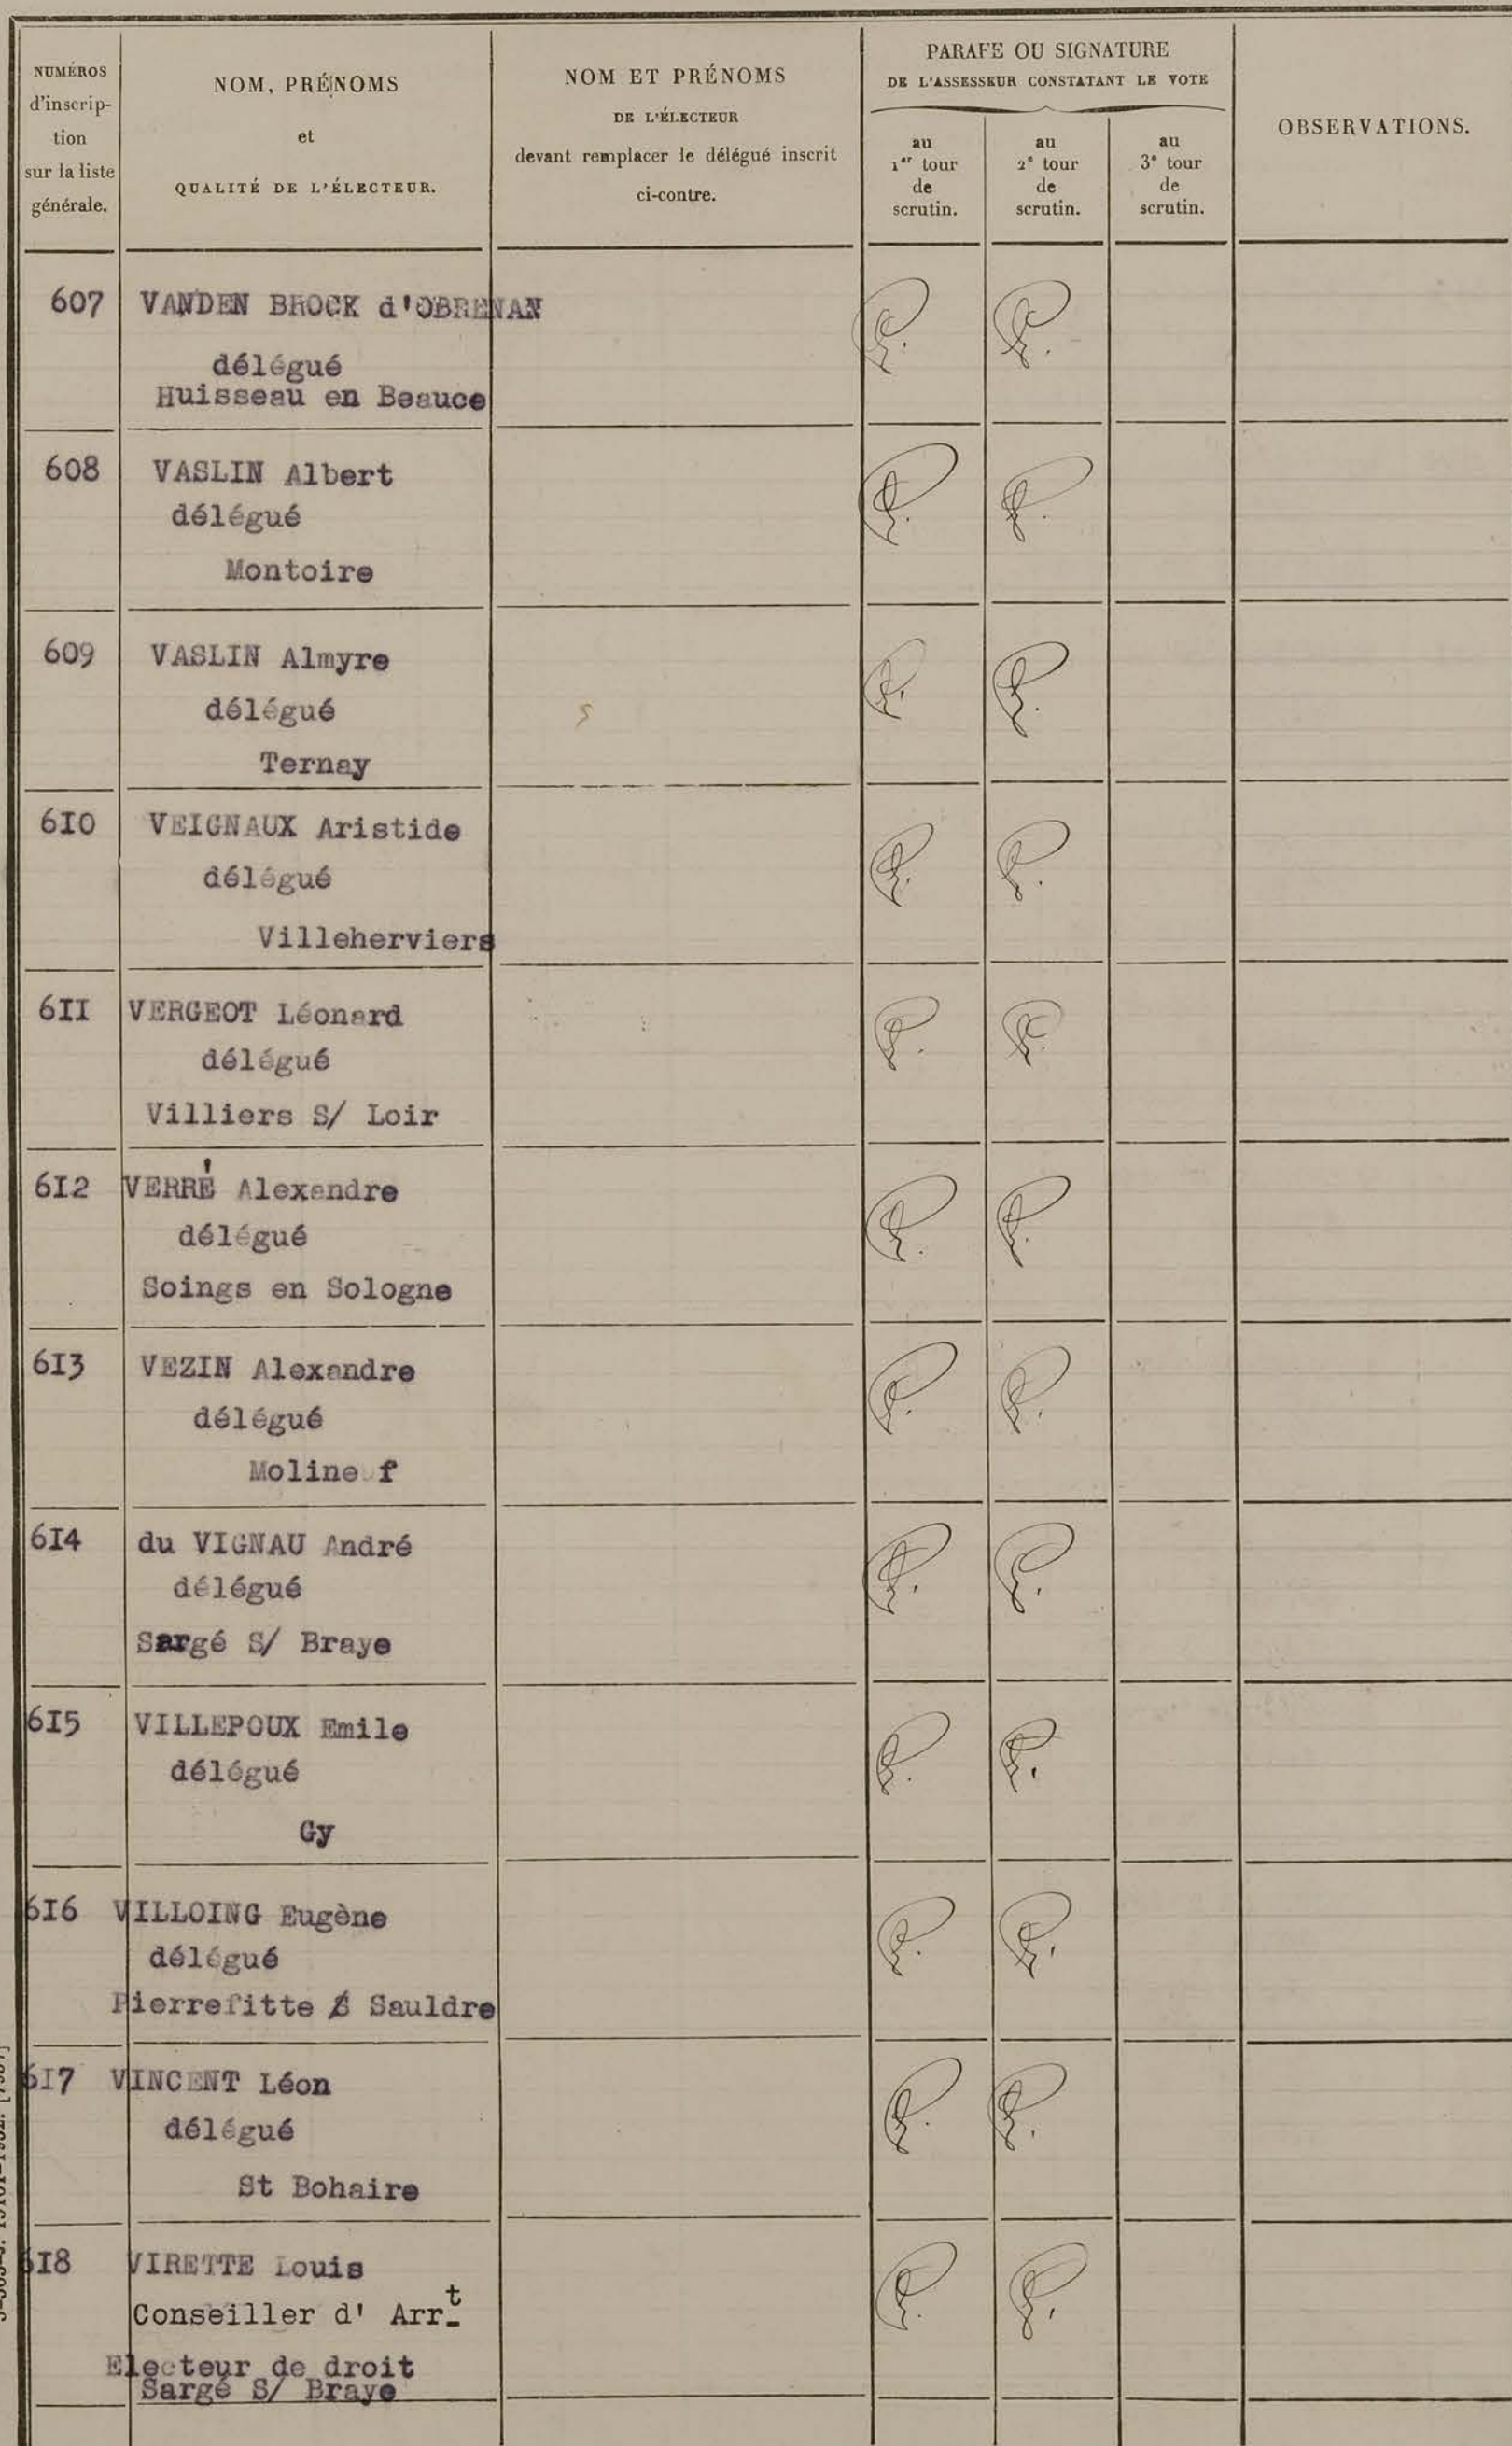 NUMÉROS
d'inscrip-
tion
sur la liste
générale.
NOM, PRÉNOMS
et
QUALITÉ DE L'ÉLECTEUR.
NOM ET PRÉNOMS
DE L'ÉLECTEUR
devant remplacer le délégué inscrit
ci-contre.
PARAFE OU SIGNATURE
DE L'ASSESSEUR CONSTATANT LE VOTE
au
1er tour
de
scrutin.
au
2e tour
de
scrutin.
au
3e tour
de
scrutin.
OBSERVATIONS.
607 VANDEN BROCK d'OBRENAN
délégué
Huisseau en Beauce
608 VASLIN Albert
délégué
Montoire
609 VASLIN Almyre
délégué
Ternay
6I0 VEIGNAUX Aristide
délégué
Villeherviers
6II VERGEOT Léonard
délégué
Villiers S/ Loir
6I2 VERRÉ Alexandre
délégué
Soings en Sologne
6I3 VEZIN Alexandre
délégué
Molineuf
6I4 du VIGNAU André
délégué
Sargé S/ Braye
6I5 VILLEPOUX Emile
délégué
Gy
6I6 VILLOING Eugène
délégué
Pierrefitte S/ Sauldre
6I7 VINCENT Léon
délégué
St Bohaire
6I8 VIRETTE Louis
Conseiller d' Arrt
Electeur de droit
Sargé S/ Braye